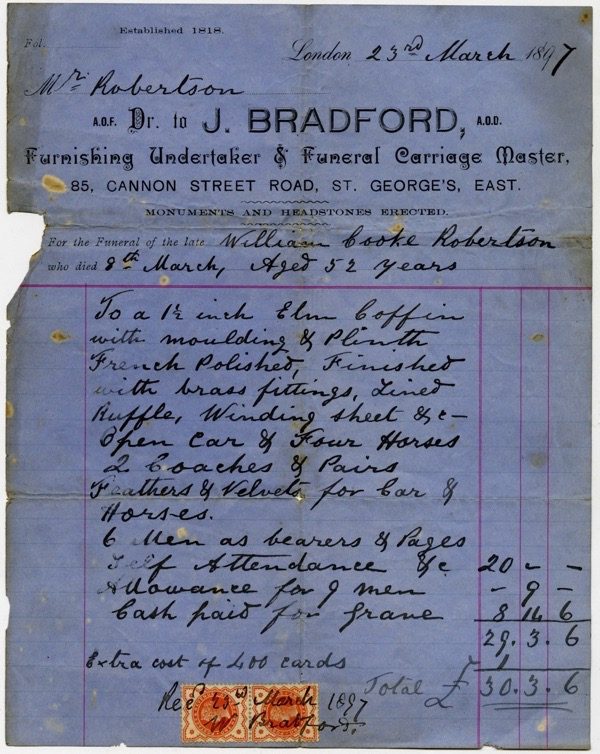 Established 1818.
Fol.
London 23rd March 1897
Mr. Robertson
A.O.F. Dr. to J. BRADFORD, A.O.D.
Furnishing Undertaker & Funeral Carriage Master,
85, CANNON STREET ROAD, ST. GEORGE'S, EAST.
MONUMENTS AND HEADSTONES ERECTED.
For the Funeral of the late William Cooke Robertson
who died 8th March, Aged 52 years
To a 1½ inch Elm Coffin
with moulding & Plinth
French Polished, Finished
with brass fittings, Lined
Ruffle, Winding sheet &c-
Open Car & Four Horses
2 Coaches & Pairs
Feathers & Velvets for Car &
Horses.
6 Men as bearers & Pages
Self Attendance &c 20 - -
Allowance for 9 men - 9 -
Cash paid for Grave 8 14 6
29. 3. 6
Extra cost of 400 cards 1
Total £ 30. 3. 6
Recd March 1897
W. Bradford.